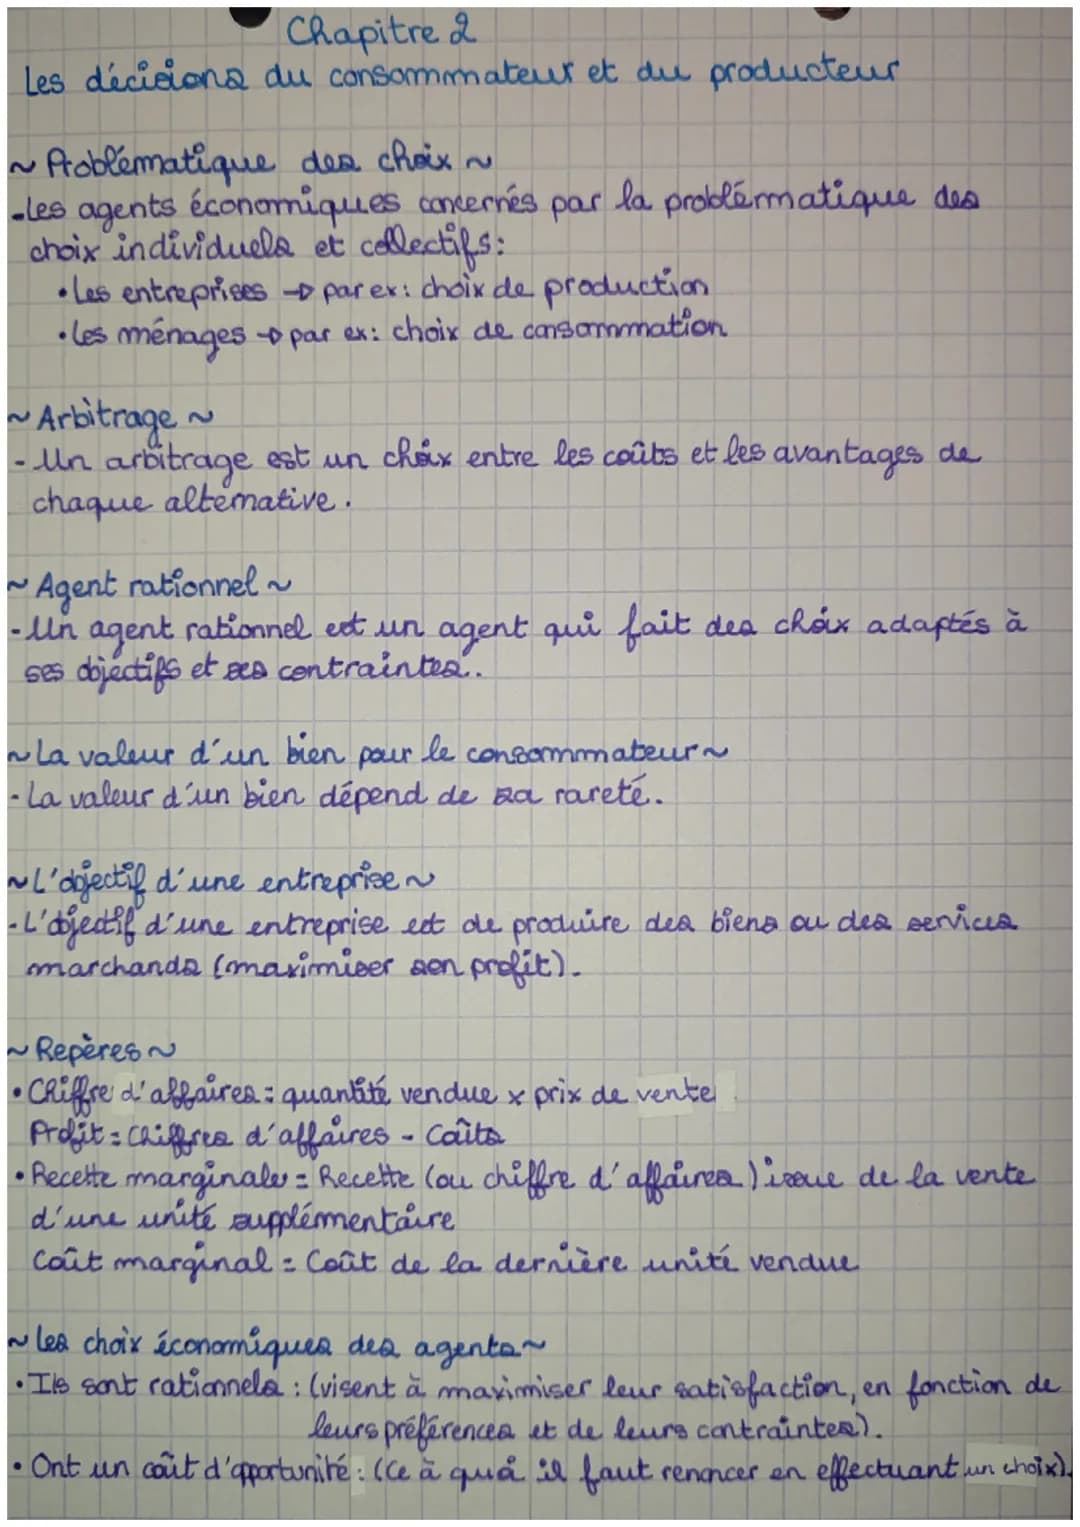 Chapitre 2
Les décisions du consommateur et du producteur
~ Problématique des choix ~
-Les agents économiques concernés par la problématique des
choix individuels et collectifs:
•Les entreprises → par ex: choix de production
•Les ménages → par ex: choix de consommation
~ Arbitrage ~
- Un arbitrage est un choix entre les coûts et les avantages de
chaque alternative.
~ Agent rationnel ~
- Un agent rationnel est un agent qui fait des choix adaptés à
ses objectifs et ses contraintes..
~ La valeur d'un bien pour le consommateur ~
- La valeur d'un bien dépend de sa rareté.
~ L'objectif d'une entreprise ~
- L'objectif d'une entreprise est de produire des biens ou des services
marchands (maximiser son profit).
~ Repères ~
• Chiffre d'affaires = quantité vendue x prix de vente
Profit = Chiffres d'affaires - Coûts
• Recette marginale = Recette (ou chiffre d'affaires) issue de la vente
d'une unité supplémentaire
Coût marginal = Coût de la dernière unité vendue
~ Les choix économiques des agents ~
• Ils sont rationnels : (visent à maximiser leur satisfaction, en fonction de
leurs préférences et de leurs contraintes).
• Ont un coût d'opportunité : (Ce à quoi il faut renoncer en effectuant un choix).